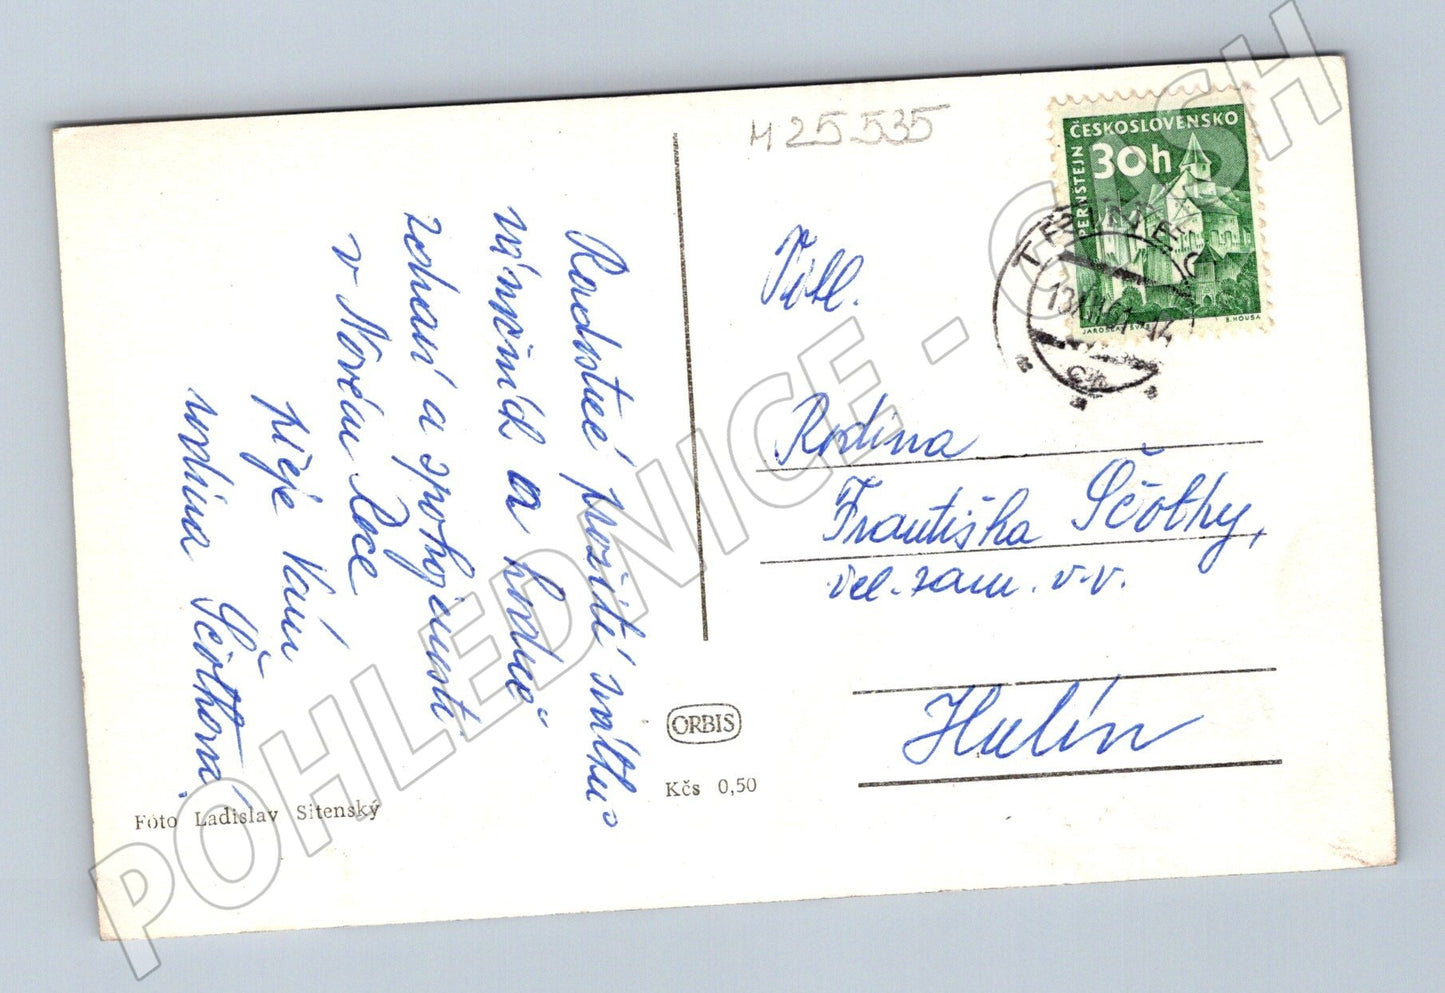 M 25.535
ČESKOSLOVENSKO
30h
PERNŠTEJN
JAROSLAV ŠVÁB
B. HOUSA
13.XII.61-14
Radostné prožití svátků
vánočních a hodně
zdraví a spokojenosti
v Novém Roce
přeje Vám
rodina
Vdl.
Rodina
Františka Ščotky,
vel. zam. v.v.
Hulín
ORBIS
Kčs 0,50
Foto Ladislav Sitenský
POHLEDNICE - CASH